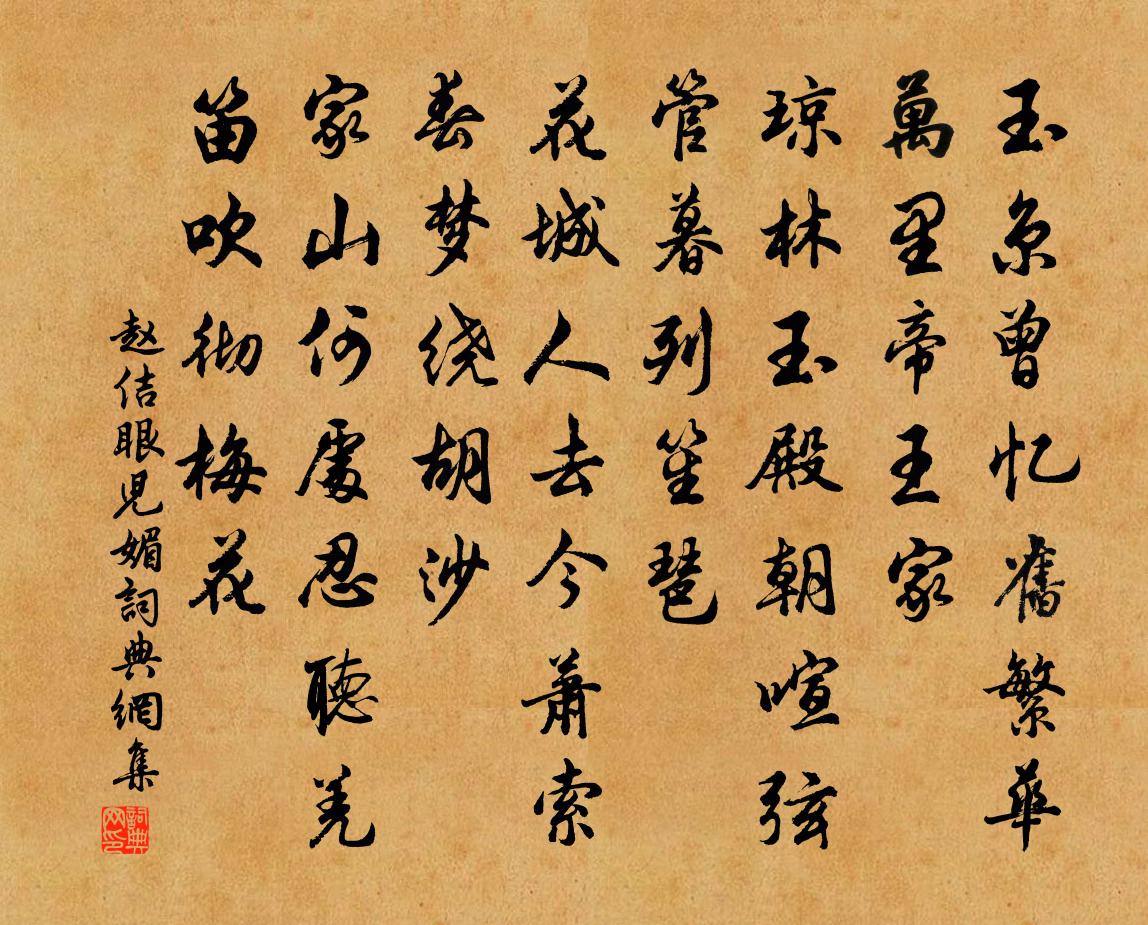 玉京曾忆舊繁華
萬里帝王家
琼林玉殿朝喧弦
管暮列笙琶
花城人去今萧索
春梦绕胡沙
家山何處忍聽羌
笛吹彻梅花
赵佶眼児媚詞典網集
詞典网印